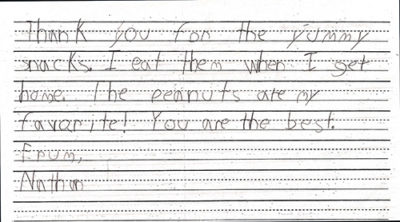 Thank you for the yummy
snacks. I eat them when I get
home. The peanuts are my
favorite! You are the best.
Frum,
Nathan